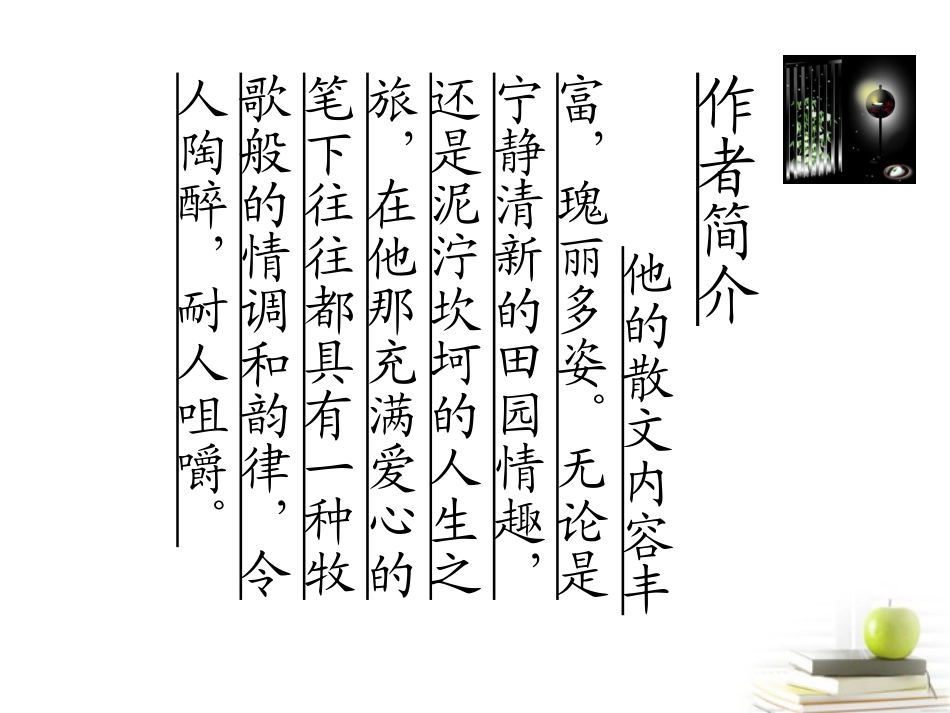 作者简介
他的散文内容丰
富，瑰丽多姿。无论是
宁静清新的田园情趣，
还是泥泞坎坷的人生之
旅，在他那充满爱心的
笔下往往都具有一种牧
歌般的情调和韵律，令
人陶醉，耐人咀嚼。